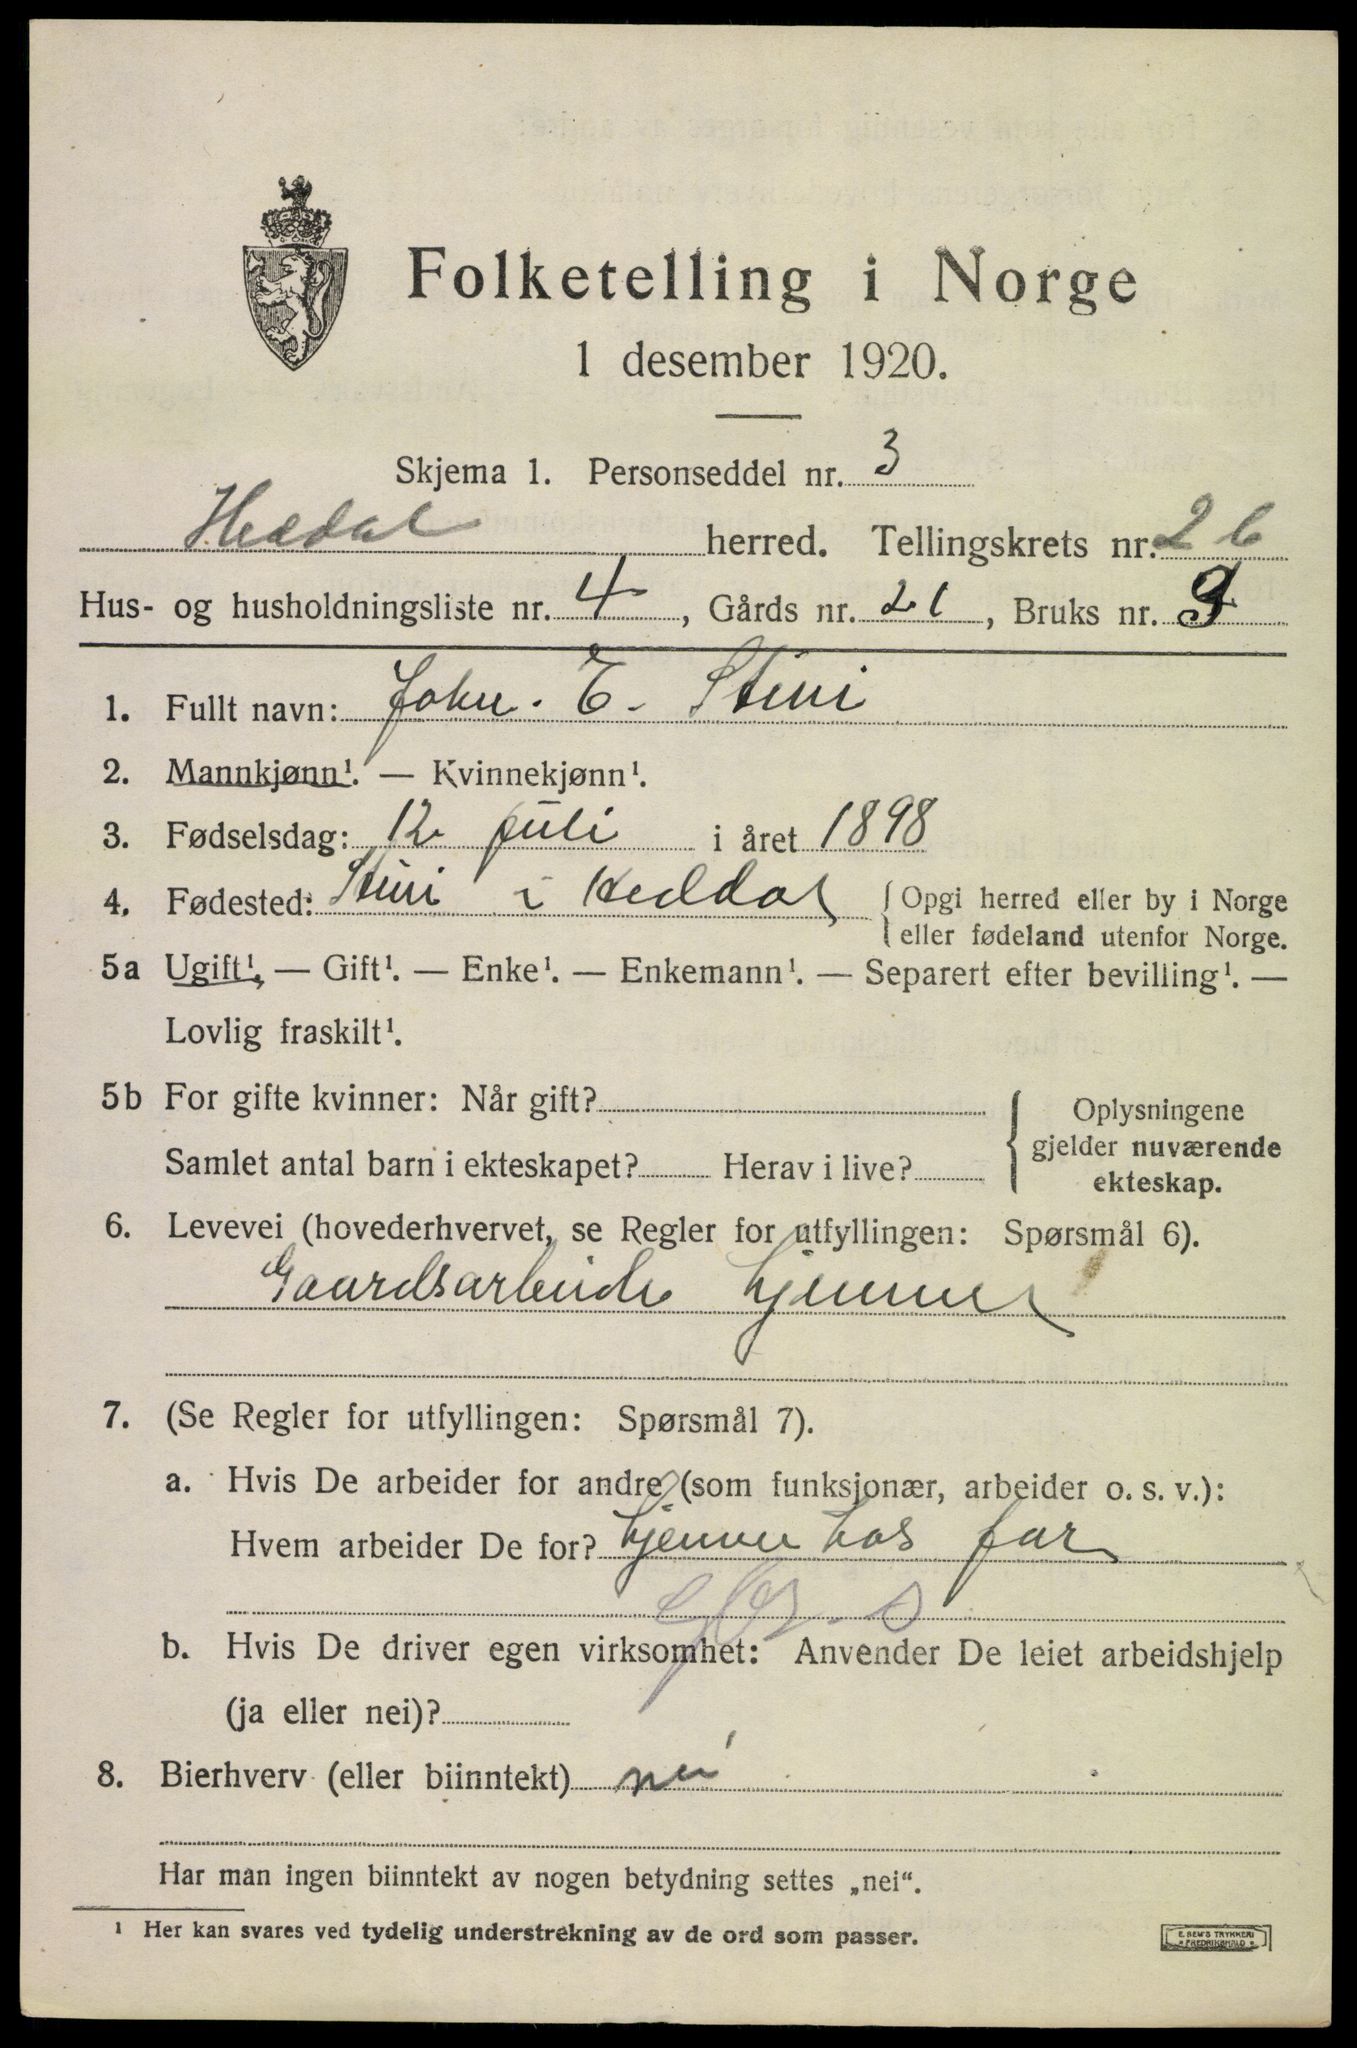 Folketelling i Norge
1 desember 1920.
Skjema 1. Personseddel nr. 3
Heddal herred. Tellingskrets nr. 2 b
Hus- og husholdningsliste nr. 4, Gårds nr. 21, Bruks nr. 9
1. Fullt navn: John. E. Stivi
2. Mannkjønn¹. — Kvinnekjønn¹.
3. Fødselsdag: 12 juli i året 1898
4. Fødested: Stivi i Heddal { Opgi herred eller by i Norge
eller fødeland utenfor Norge.
5a Ugift¹, — Gift¹. — Enke¹. — Enkemann¹. — Separert efter bevilling¹. —
Lovlig fraskilt¹.
5b For gifte kvinner: Når gift?
Samlet antal barn i ekteskapet? Herav i live?
{ Oplysningene
gjelder nuværende
ekteskap.
6. Levevei (hovederhvervet, se Regler for utfyllingen: Spørsmål 6).
Gaardsarbeide hjemme
7. (Se Regler for utfyllingen: Spørsmål 7).
a. Hvis De arbeider for andre (som funksjonær, arbeider o. s. v.):
Hvem arbeider De for? hjemme hos far
b. Hvis De driver egen virksomhet: Anvender De leiet arbeidshjelp
(ja eller nei)?
8. Bierhverv (eller biinntekt) nei
Har man ingen biinntekt av nogen betydning settes „nei“.
¹ Her kan svares ved tydelig understrekning av de ord som passer.
E. SEM'S TRYKKERI
FREDRIKSHALD